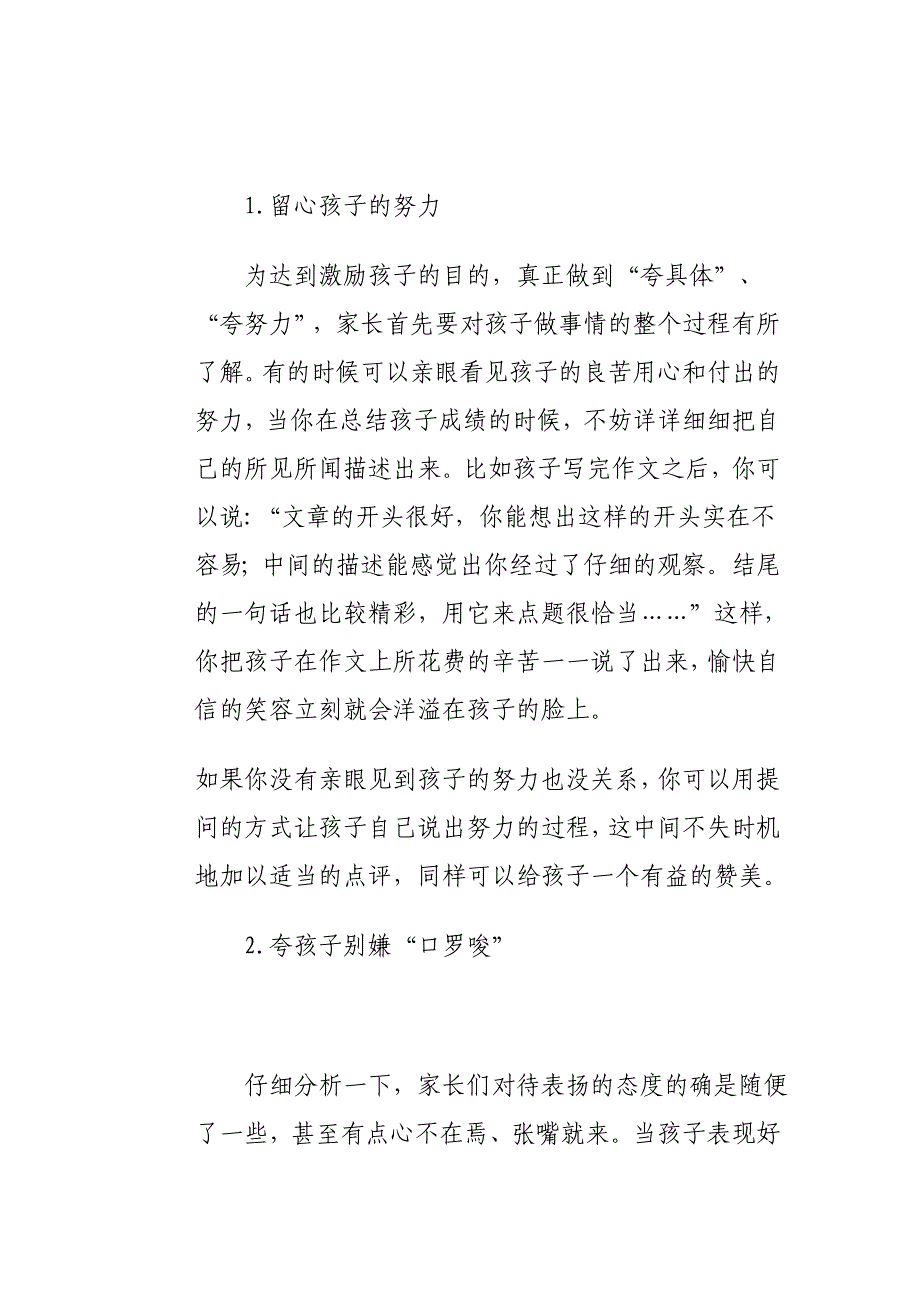 1.留心孩子的努力
为达到激励孩子的目的，真正做到“夸具体”、
“夸努力”，家长首先要对孩子做事情的整个过程有所
了解。有的时候可以亲眼看见孩子的良苦用心和付出的
努力，当你在总结孩子成绩的时候，不妨详详细细把自
己的所见所闻描述出来。比如孩子写完作文之后，你可
以说：“文章的开头很好，你能想出这样的开头实在不
容易；中间的描述能感觉出你经过了仔细的观察。结尾
的一句话也比较精彩，用它来点题很恰当……”这样，
你把孩子在作文上所花费的辛苦一一说了出来，愉快自
信的笑容立刻就会洋溢在孩子的脸上。
如果你没有亲眼见到孩子的努力也没关系，你可以用提
问的方式让孩子自己说出努力的过程，这中间不失时机
地加以适当的点评，同样可以给孩子一个有益的赞美。
2.夸孩子别嫌“口罗唆”
仔细分析一下，家长们对待表扬的态度的确是随便
了一些，甚至有点心不在焉、张嘴就来。当孩子表现好